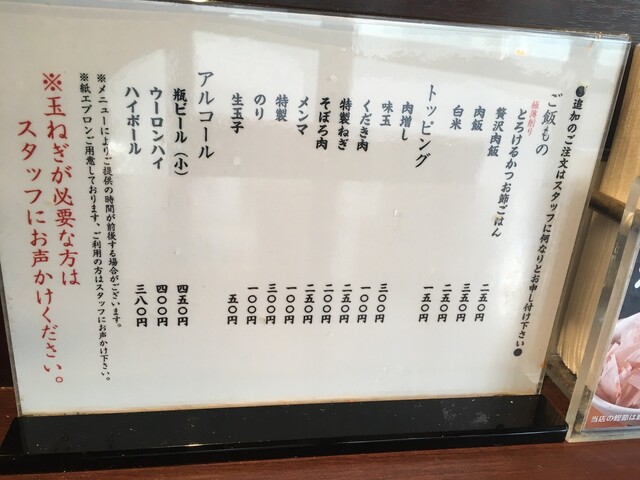 ●追加のご注文はスタッフに何なりとお申し付け下さい●
ご飯もの
極薄削り
とろけるかつお節ごはん 二五〇円
贅沢肉飯 三五〇円
肉飯 二五〇円
白米 一五〇円
トッピング
肉増し 三〇〇円
味玉 一〇〇円
くだき肉 二五〇円
特製ねぎ 二〇〇円
そぼろ肉 二五〇円
メンマ 一〇〇円
特製 三〇〇円
のり 一〇〇円
生玉子 五〇円
アルコール
瓶ビール（小） 四五〇円
ウーロンハイ 四〇〇円
ハイボール 三八〇円
※メニューによりご提供の時間が前後する場合がございます。
※紙エプロンご用意しております、ご利用の方はスタッフにお声かけ下さい。
※玉ねぎが必要な方は
スタッフにお声かけください。
当店の鰹節は